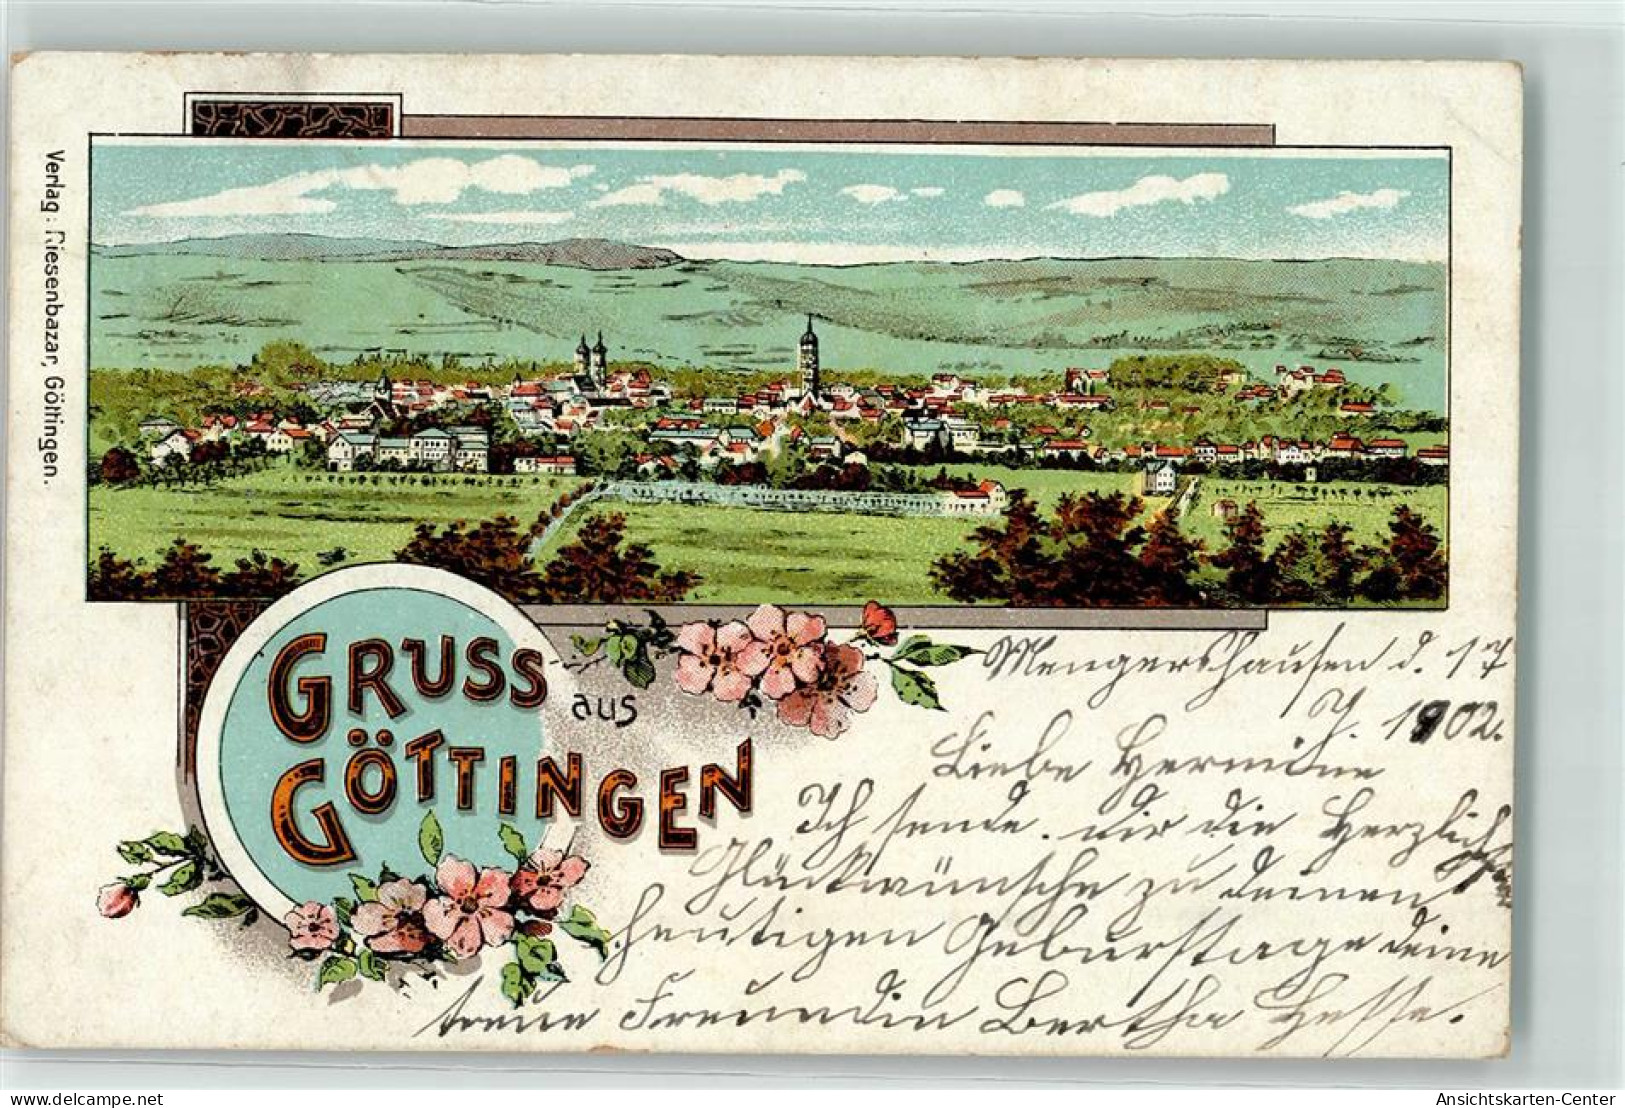 Verlag: Riesenbazar, Göttingen.
GRUSS
aus
GÖTTINGEN
Mengershausen d. 17
1902.
Liebe Hermine
Ich sende dir die Herzlichsten
Glückwünsche zu deinen
heutigen Geburstage deine
treue Freundin Bertha Hesse.
www.delcampe.net
Ansichtskarten-Center